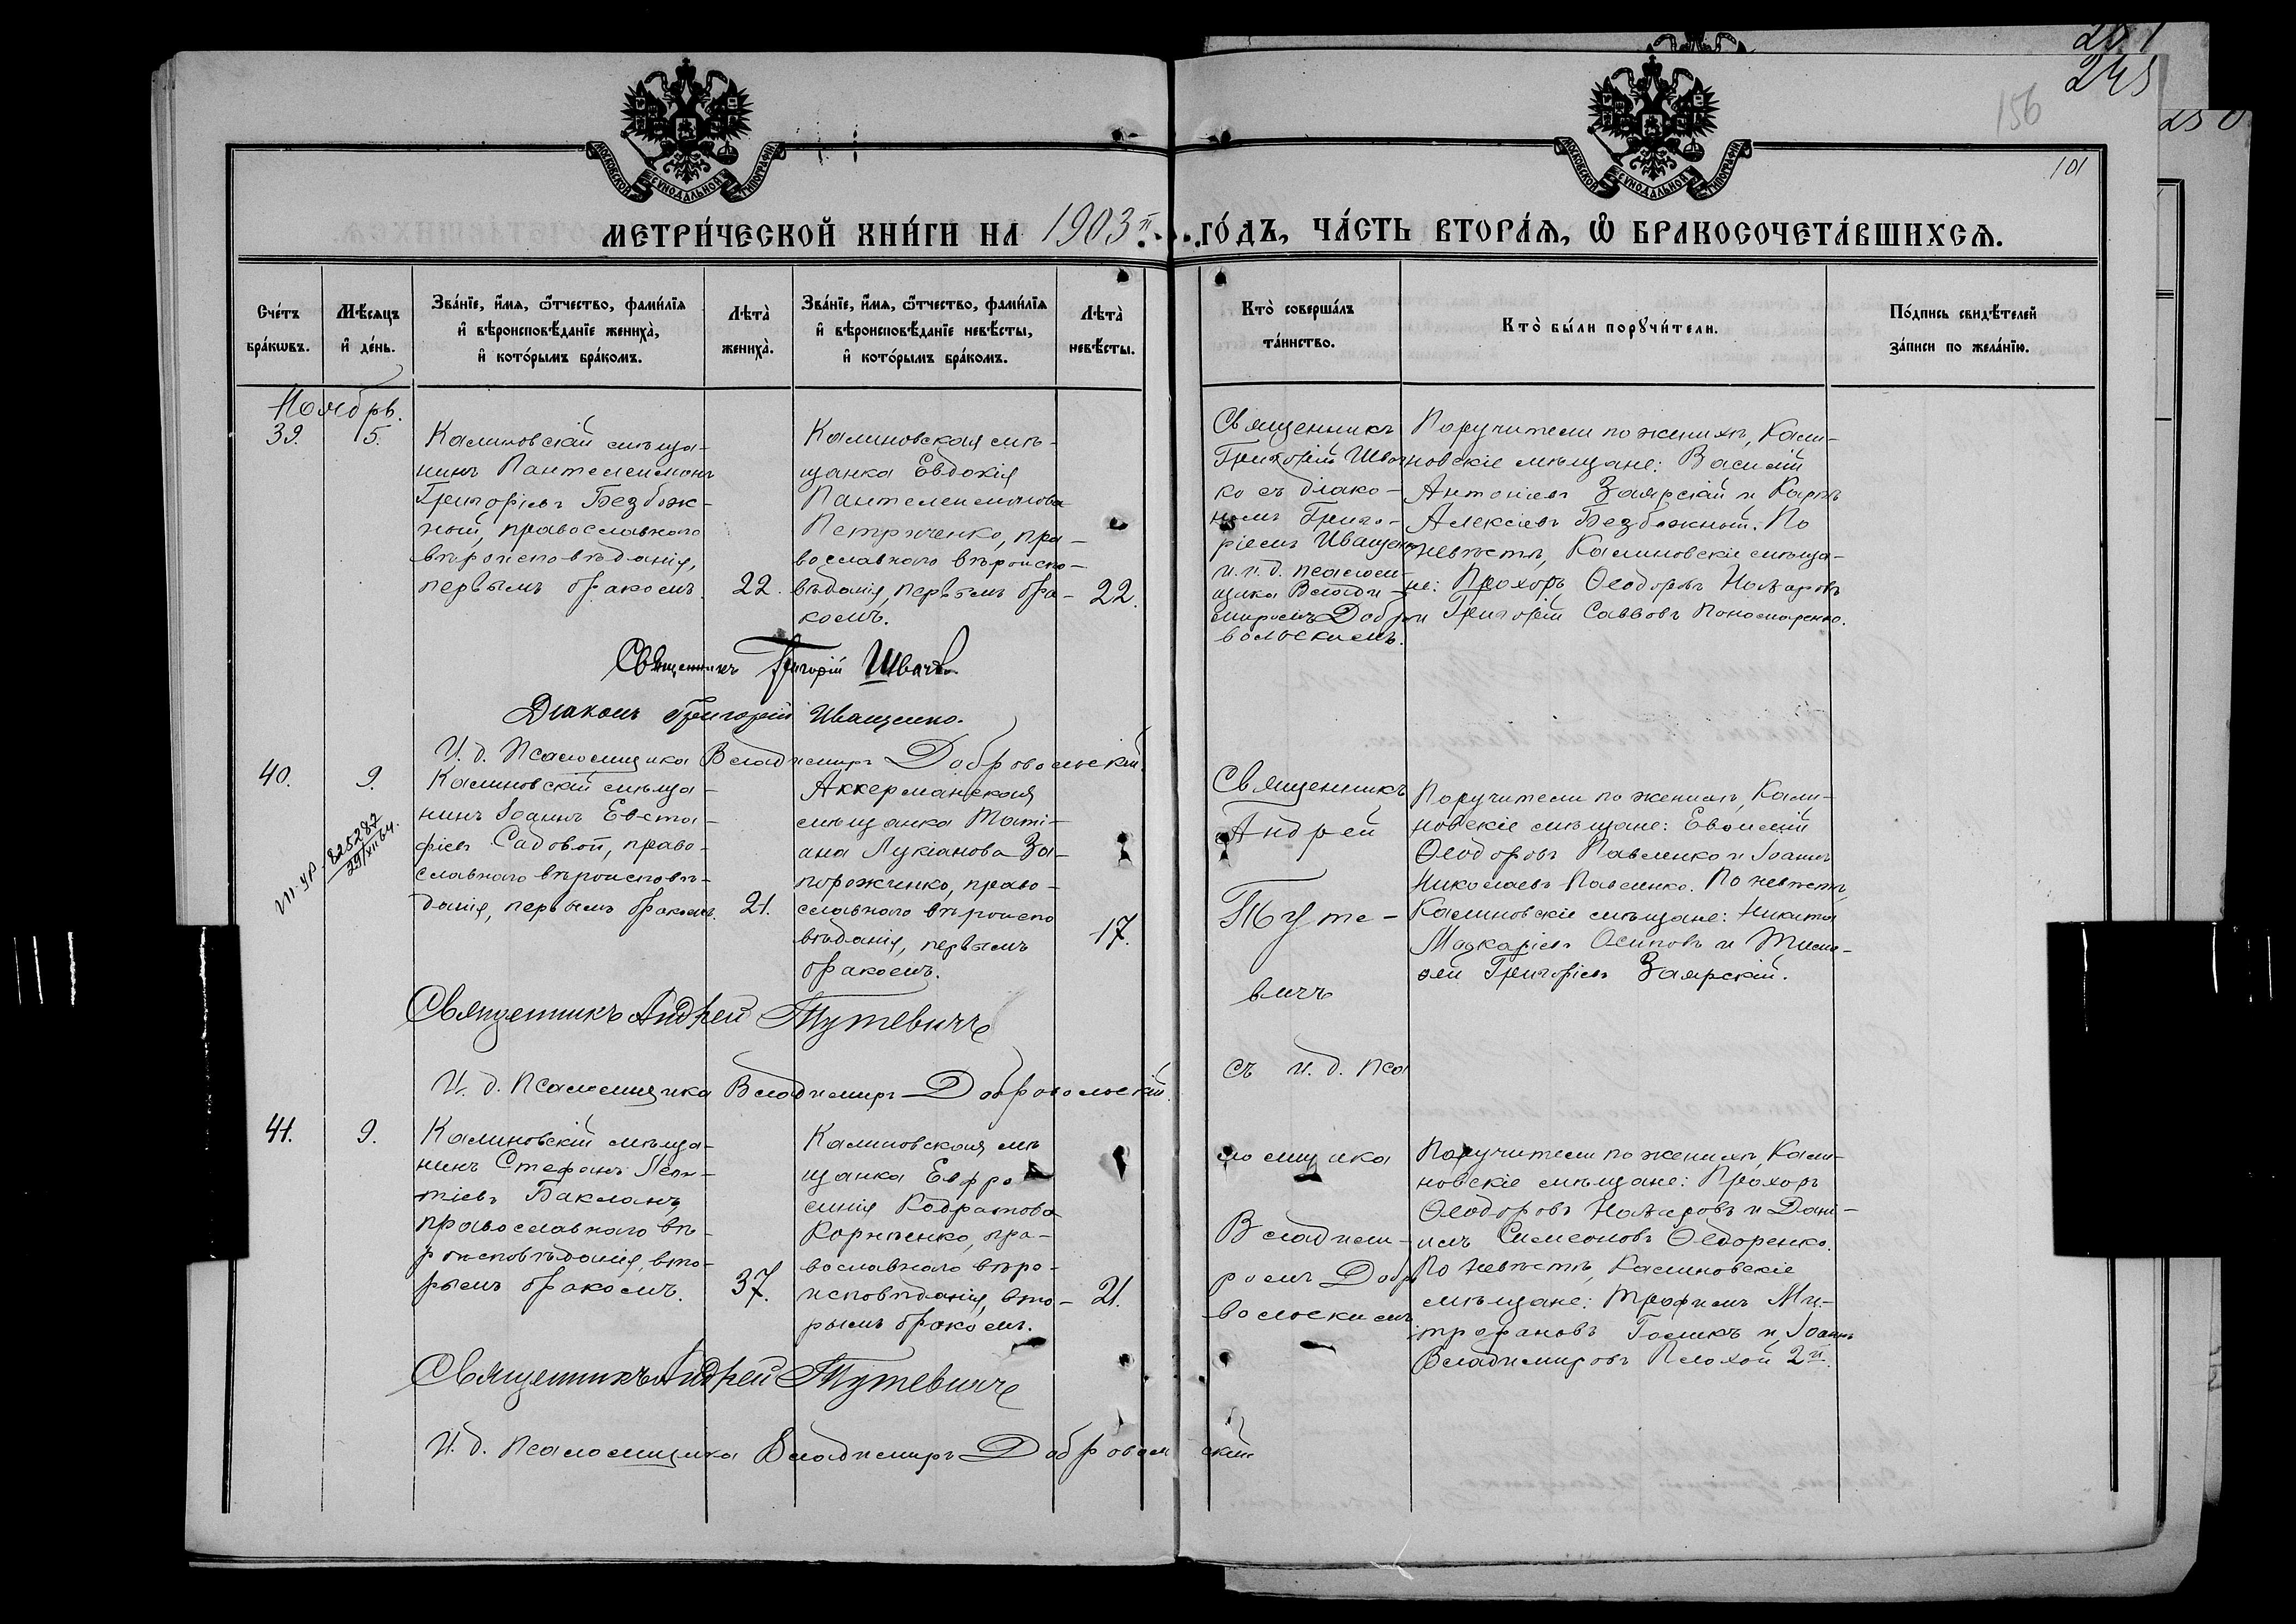 251
245
250
156
101
МОСКОВСКОЙ СѴНОДАЛЬНОЙ ТИПОГРАФІИ
МОСКОВСКОЙ СѴНОДАЛЬНОЙ ТИПОГРАФІИ
МЕТРИ́ЧЕСКОЙ КНИ́ГИ НА 1903й го́дъ, ЧА́СТЬ ВТОРА́Ѧ, Ѽ БРАКОСОЧЕТА́ВШИХСѦ.
Сче́тъ
бра́кѡвъ.
Мѣ́сяцъ
и҆ де́нь.
Зва́нїе, и҆́мѧ, ѻ҆́тчество, фами́лїѧ
и҆ вѣроисповѣ́данїе жениха̀,
и҆ кото́рымъ бра́комъ.
Лѣта̀
жениха̀.
Зва́нїе, и҆́мѧ, ѻ҆́тчество, фами́лїѧ
и҆ вѣроисповѣ́данїе невѣ́сты,
и҆ кото́рымъ бра́комъ.
Лѣта̀
невѣ́сты.
Кто̀ соверша́лъ
та́инство.
Кто̀ бы́ли порꙋчи́тели.
По́дпись свидѣ́телей
за́писи по жела́нїю.
Ноябрь.
39.
5.
Калиновскій мѣща-
нинъ Пантелеимонъ
Григоріевъ Безбож-
ный, православнаго
вѣроисповѣданія,
первымъ бракомъ.
22.
Калиновская мѣ-
щанка Евдокія
Пантелеимонова
Петриченко, пра-
вославнаго вѣроиспо-
вѣданія, первымъ бра-
комъ.
22.
Священникъ
Григорій Швач
ко съ діако-
номъ Григо-
ріемъ Иващенк
и. д. псалом-
щика Влади-
миромъ Добро
вольскимъ.
Поручители по женихѣ, Кали-
новскіе мѣщане: Василій
Антоніевъ Заярскій и Карпъ
Алексіевъ Безбожный. По
невѣстѣ, Калиновскіе мѣща-
не: Прохоръ Ѳеодоровъ Назаровъ
и Григорій Саввовъ Пономаренко.
Священникъ Григорій Швачко
Діаконъ Григорій Иващенко.
И. д. Псаломщика Владимиръ Добровольскій.
40.
9.
III-УР 825287
29/XII 64.
Калиновскій мѣща-
нинъ Іоаннъ Евста-
фіевъ Садовой, право-
славнаго вѣроисповѣ-
данія, первымъ бракомъ.
21.
Аккерманская
мѣщанка Таті-
ана Лукіанова За-
порожченко, право-
славнаго вѣроиспо
вѣданія, первымъ
бракомъ.
17.
Священникъ
Андрей
Туте-
вичъ
съ и. д. пса
ломщика
Владими-
ромъ Добр
вольскимъ
Поручители по женихѣ, Кали-
новскіе мѣщане:
Ѳеодоровъ Павленко и Іоаннъ
Николаевъ Павленко. По невѣстѣ,
Калиновскіе мѣщане: Никита
Макаріевъ Осиповъ и Тимо-
ѳей Григоріевъ Заярскій.
Священникъ Андрей Тутевичъ
И. д. Псаломщика Владимиръ Добровольскій.
41.
9.
Калиновскій мѣща-
нинъ Стефанъ Леон-
тіевъ Бакланъ,
православнаго вѣ-
роисповѣданія, вто-
рымъ бракомъ.
37.
Калиновская мѣ
щанка Евфро
синія Кодратова
Корніенко, пра-
вославнаго вѣро-
исповѣданія, вто-
рымъ бракомъ.
21.
Поручители по женихѣ, Кали-
новскіе мѣщане: Прохоръ
Ѳеодоровъ Назаровъ и Дані-
илъ Симеоновъ Ѳедоренко.
По невѣстѣ, Калиновскіе
мѣщане: Трофимъ Ми-
трофановъ Голикъ и Іоаннъ
Владимировъ Плохой 2й.
Священникъ Андрей Тутевичъ
И. д. Псаломщика Владимиръ Добровольскій